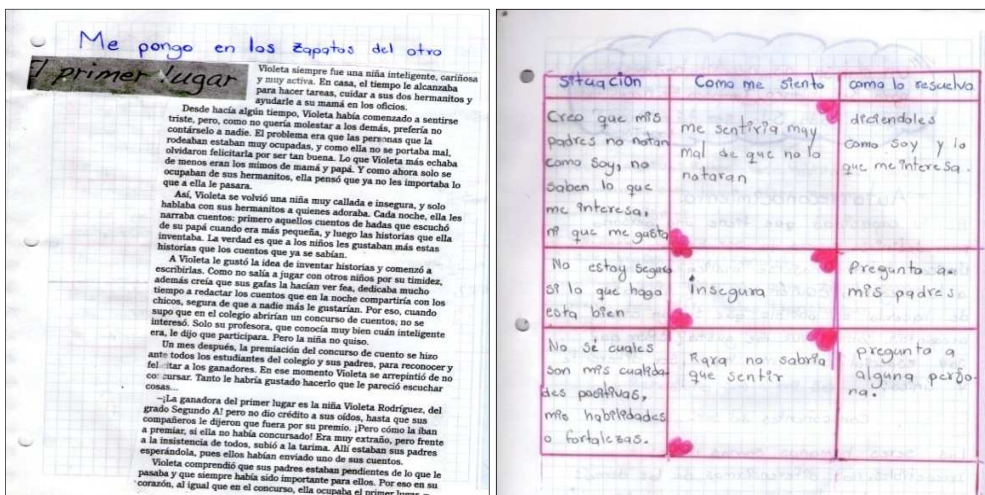 Me pongo en los zapatos del otro
El primer lugar
Violeta siempre fue una niña inteligente, cariñosa
y muy activa. En casa, el tiempo le alcanzaba
para hacer tareas, cuidar a sus dos hermanitos y
ayudarle a su mamá en los oficios.
Desde hacía algún tiempo, Violeta había comenzado a sentirse
triste, pero, como no quería molestar a los demás, prefería no
contárselo a nadie. El problema era que las personas que la
rodeaban estaban muy ocupadas, y como ella no se portaba mal,
olvidaron felicitarla por ser tan buena. Lo que Violeta más echaba
de menos eran los mimos de mamá y papá. Y como ahora solo se
ocupaban de sus hermanitos, ella pensó que ya no les importaba lo
que a ella le pasara.
Así, Violeta se volvió una niña muy callada e insegura, y solo
hablaba con sus hermanitos a quienes adoraba. Cada noche, ella les
narraba cuentos: primero aquellos cuentos de hadas que escuchó
de su papá cuando era más pequeña, y luego las historias que ella
inventaba. La verdad es que a los niños les gustaban más estas
historias que los cuentos que ya se sabían.
A Violeta le gustó la idea de inventar historias y comenzó a
escribirlas. Como no salía a jugar con otros niños por su timidez,
además creía que sus gafas la hacían ver fea, dedicaba mucho
tiempo a redactar los cuentos que en la noche compartiría con los
chicos, segura de que a nadie más le gustarían. Por eso, cuando
supo que en el colegio abrirían un concurso de cuentos, no se
interesó. Solo su profesora, que conocía muy bien cuán inteligente
era, le dijo que participara. Pero la niña no quiso.
Un mes después, la premiación del concurso de cuento se hizo
ante todos los estudiantes del colegio y sus padres, para reconocer y
felicitar a los ganadores. En ese momento Violeta se arrepintió de no
concursar. Tanto le habría gustado hacerlo que le pareció escuchar
cosas...
–¡La ganadora del primer lugar es la niña Violeta Rodríguez, del
grado Segundo A! pero no dio crédito a sus oídos, hasta que sus
compañeros le dijeron que fuera por su premio. ¡Pero cómo la iban
a premiar, si ella no había concursado! Era muy extraño, pero frente
a la insistencia de todos, subió a la tarima. Allí estaban sus padres
esperándola, pues ellos habían enviado uno de sus cuentos.
Violeta comprendió que sus padres estaban pendientes de lo que le
pasaba y que siempre había sido importante para ellos. Por eso en su
corazón, al igual que en el concurso, ella ocupaba el primer lugar
situación Como me siento como lo resuelvo
Creo que mis
padres no notan
como soy, no
saben lo que
me interesa,
ni que me gusta
me sentiria muy
mal de que no lo
notaran
diciendoles
como soy y lo
que me interesa.
No estoy segura
si lo que hago
esta bien
Insegura
Pregunto a
mis padres.
No sé cuales
son mis cualida
des positivas,
mis habilidades
o fortalezas.
Rara no sabria
que sentir
pregunto a
alguna perso-
na.